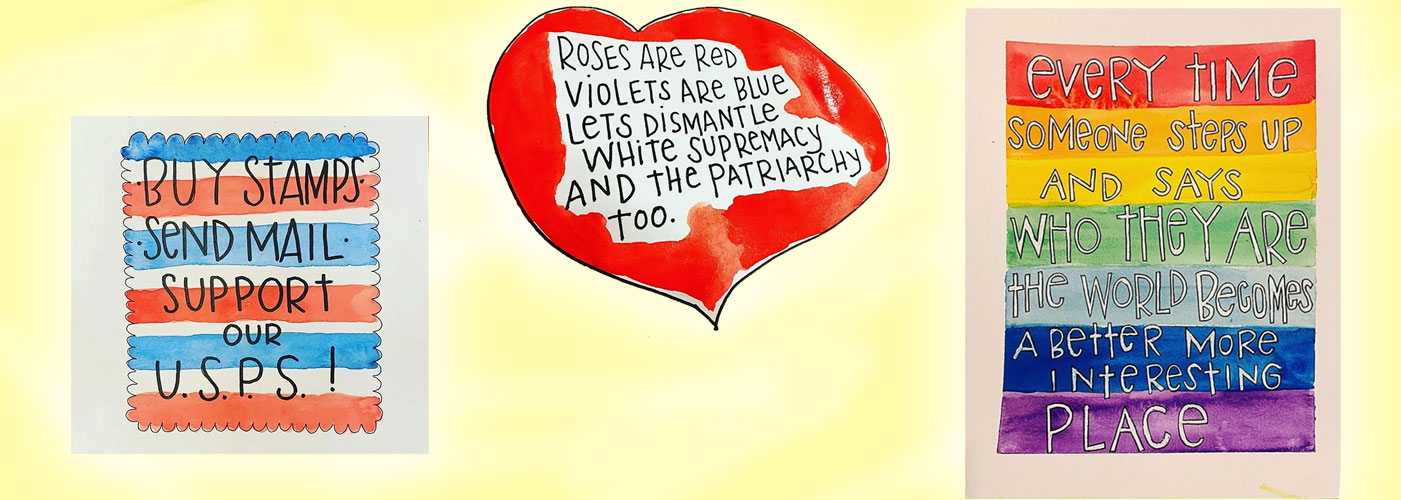 BUY STAMPS.
SEND MAIL.
SUPPORT
OUR
U.S.P.S.!
ROSES ARE RED
VIOLETS ARE BLUE
LETS DISMANTLE
WHITE SUPREMACY
AND THE PATRIARCHY
TOO.
EVERY TIME
SOMEONE STEPS UP
AND SAYS
WHO THEY ARE
THE WORLD BECOMES
A BETTER MORE
INTERESTING
PLACE